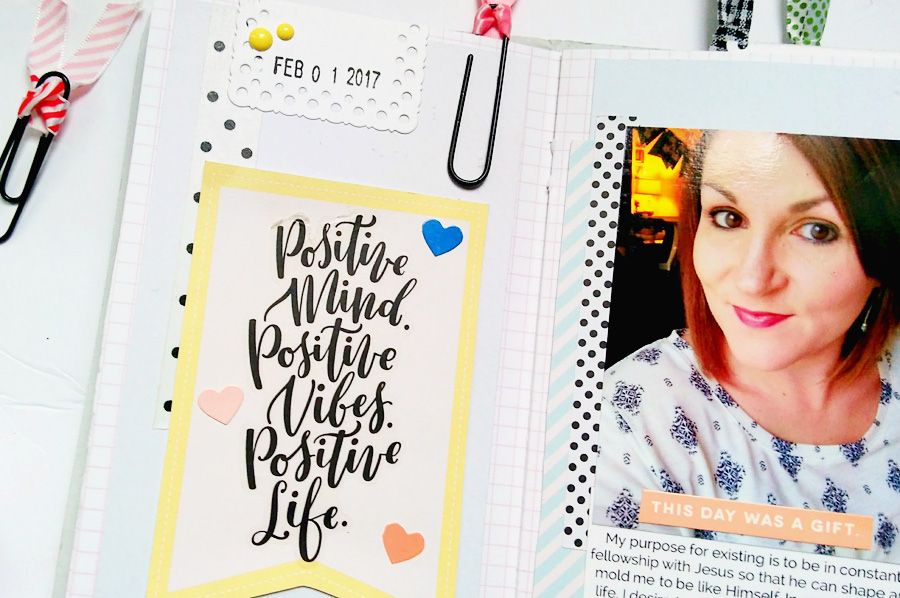 FEB 0 1 2017
Positive
Mind.
Positive
Vibes.
Positive
Life.
THIS DAY WAS A GIFT.
My purpose for existing is to be in constant
fellowship with Jesus so that he can shape
mold me to be like Himself. In
life, I